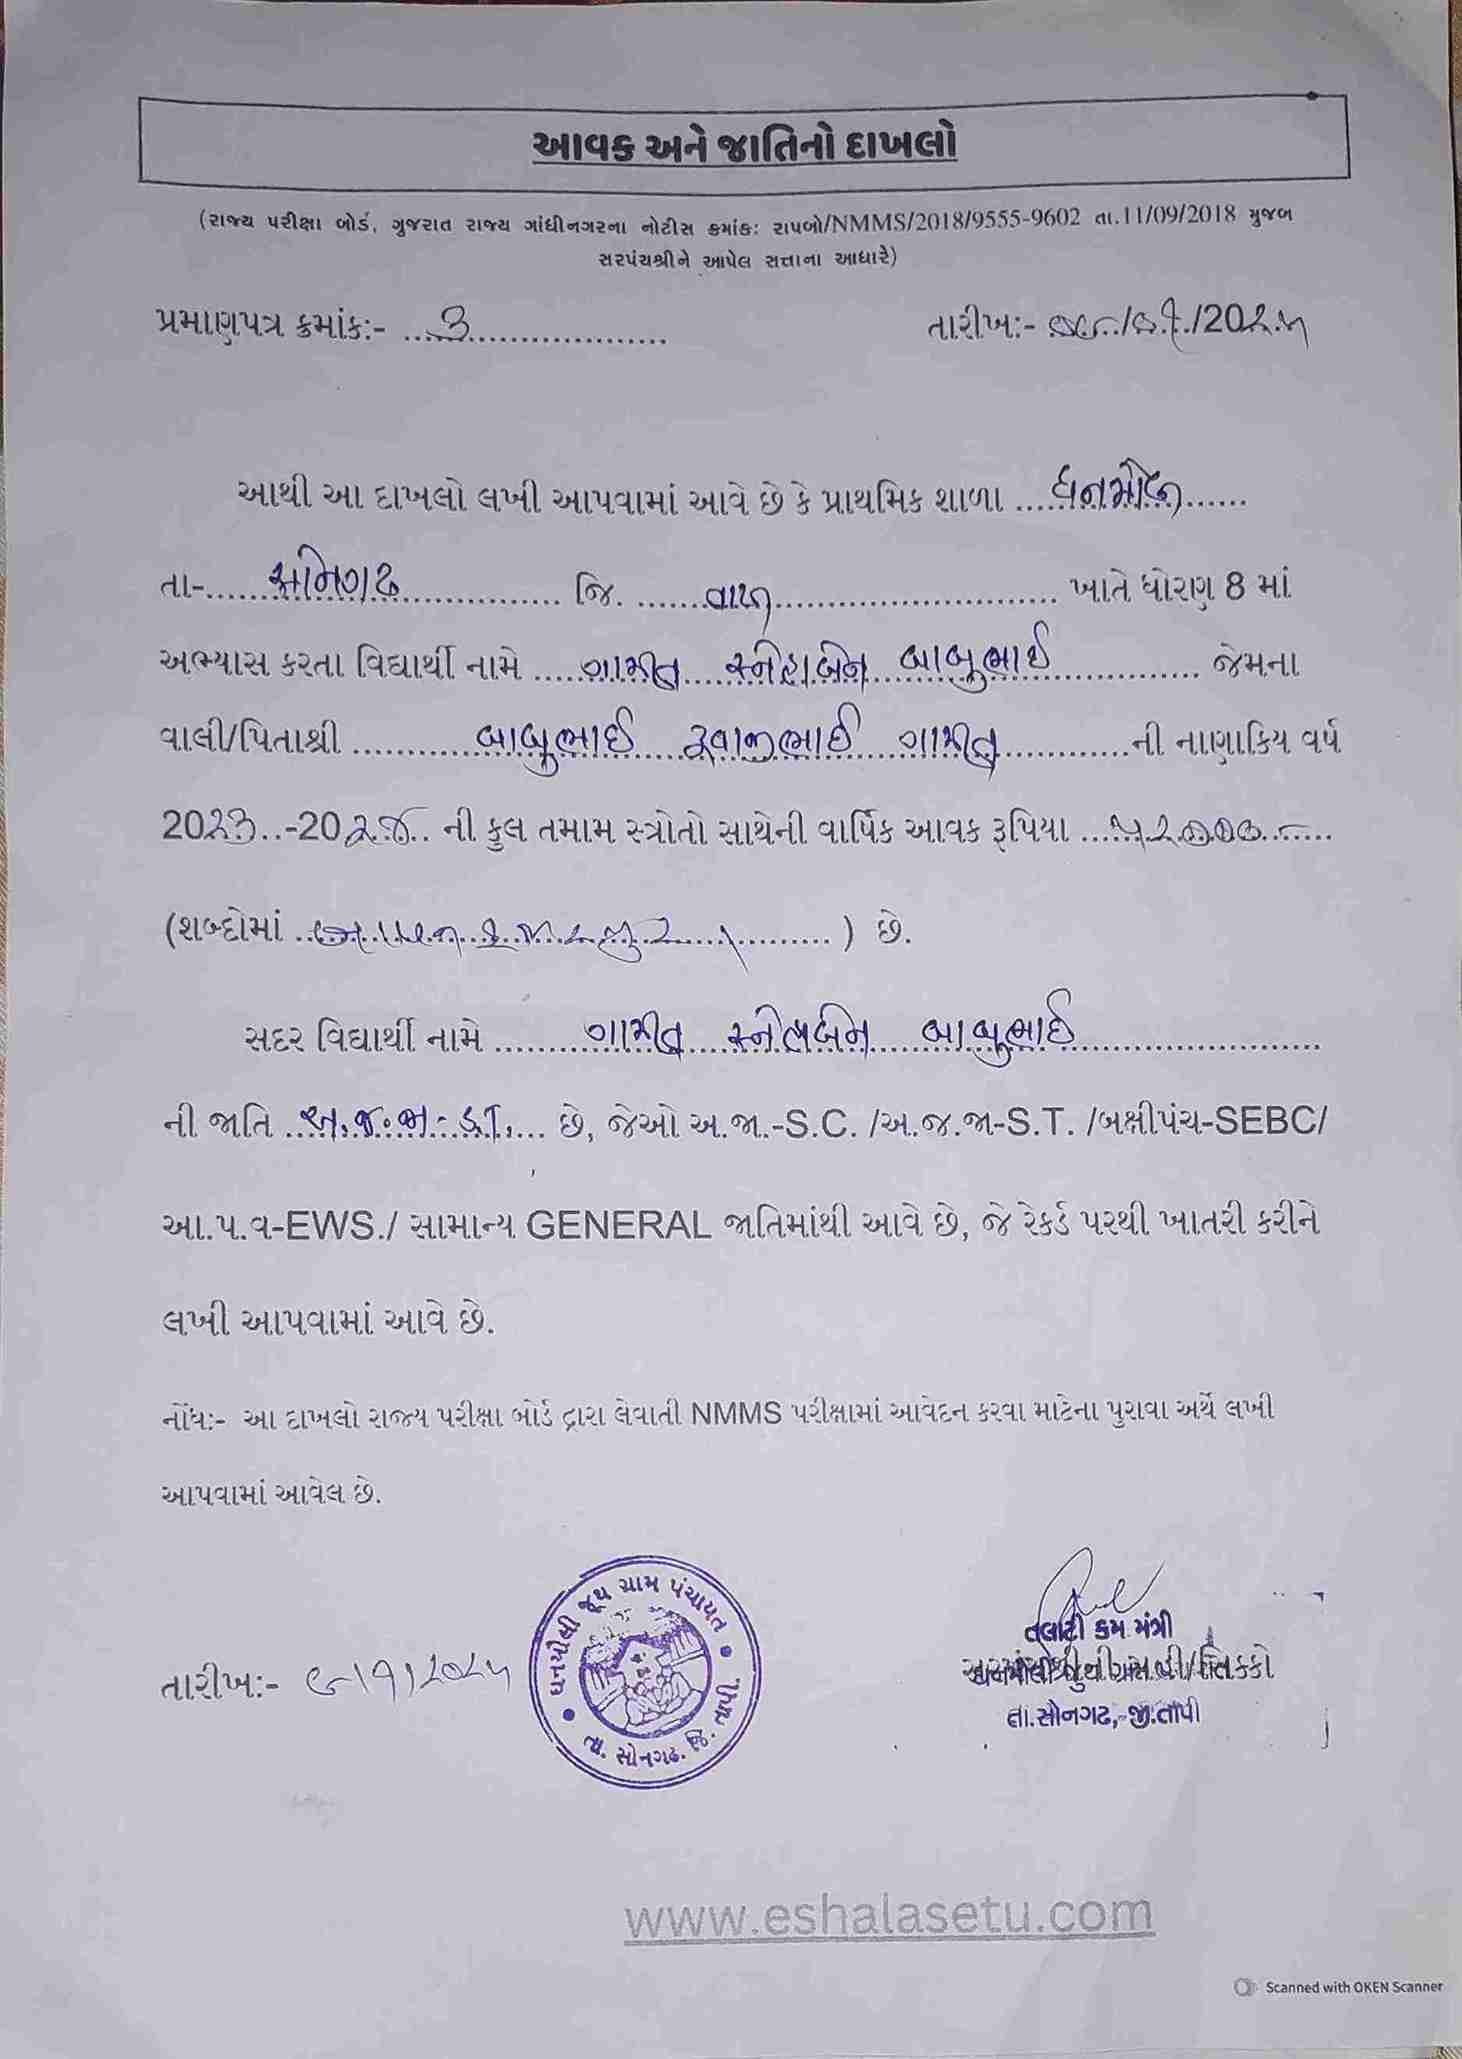 આવક અને જાતિનો દાખલો
(રાજ્ય પરીક્ષા બોર્ડ, ગુજરાત રાજ્ય ગાંધીનગરના નોટીસ ક્રમાંક: રાપબો/NMMS/2018/9555-9602 તા.11/09/2018 મુજબ
સરપંચશ્રીને આપેલ સત્તાના આધારે)
પ્રમાણપત્ર ક્રમાંક:- ...૩................... તારીખ:- /૦૧/20૨૫
આથી આ દાખલો લખી આપવામાં આવે છે કે પ્રાથમિક શાળા ...
તા-...સોનગઢ... જિ. ...તાપી... ખાતે ધોરણ 8 માં
અભ્યાસ કરતા વિદ્યાર્થી નામે ...ગામીત સ્નેહાબેન બાબુભાઈ... જેમના
વાલી/પિતાશ્રી ...બાબુભાઈ ગામીત...ની નાણાકિય વર્ષ
20૨૩..-20૨૪.. ની કુલ તમામ સ્ત્રોતો સાથેની વાર્ષિક આવક રૂપિયા ...૫૨૦૦૦...
(શબ્દોમાં ...) છે.
સદર વિદ્યાર્થી નામે ...ગામીત સ્નેહાબેન બાબુભાઈ...
ની જાતિ ...અ.જ.જા... છે, જેઓ અ.જા.-S.C. /અ.જ.જા-S.T. /બક્ષીપંચ-SEBC/
આ.પ.વ-EWS./ સામાન્ય GENERAL જાતિમાંથી આવે છે, જે રેકર્ડ પરથી ખાતરી કરીને
લખી આપવામાં આવે છે.
નોંધ:- આ દાખલો રાજ્ય પરીક્ષા બોર્ડ દ્વારા લેવાતી NMMS પરીક્ષામાં આવેદન કરવા માટેના પુરાવા અર્થે લખી
આપવામાં આવેલ છે.
તારીખ:- ૯/૧/૨૦૨૫
જૂથ ગ્રામ પંચાયત
તા. સોનગઢ. જિ. તાપી.
તલાટી કમ મંત્રી
તા.સોનગઢ,-જી.તાપી
www.eshalasetu.com
Scanned with OKEN Scanner